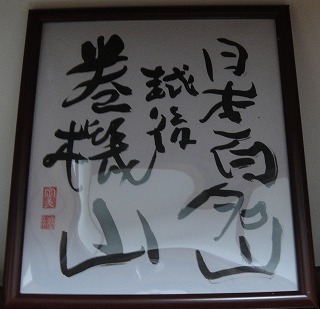 日本百名山
越後
巻機山